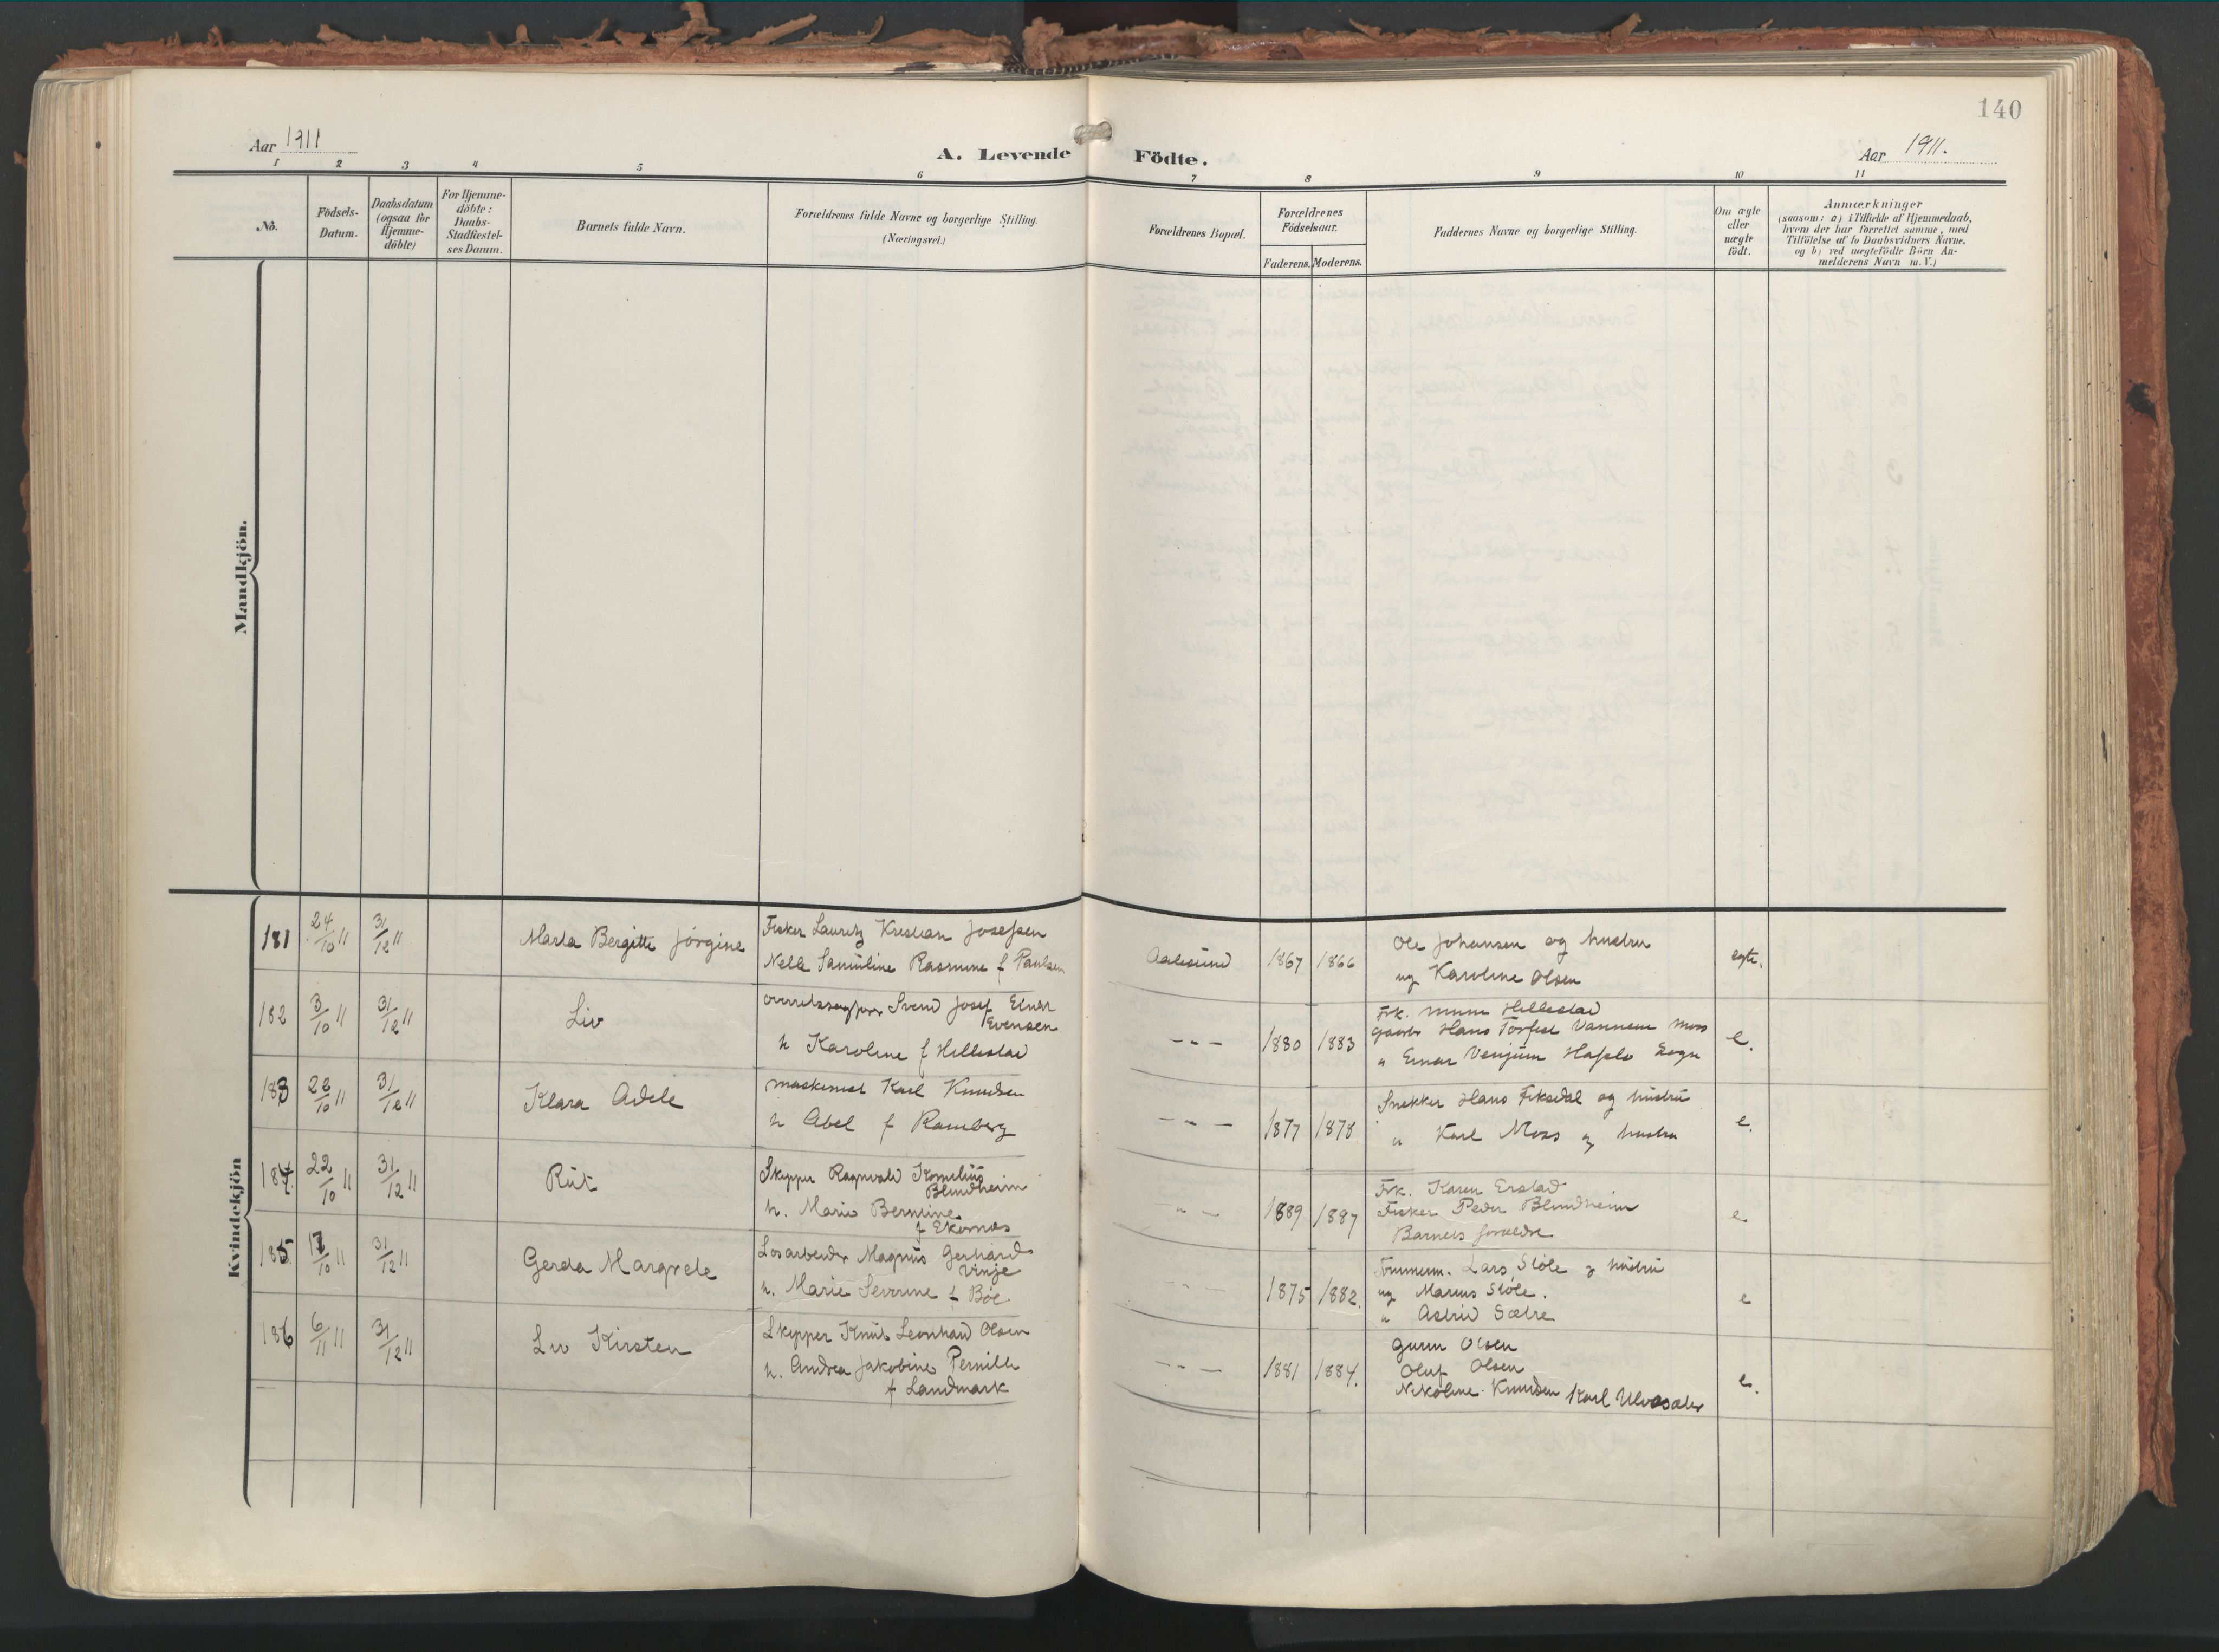 140
Aar 1911
A. Levende Födte.
Aar 1911.
1 2 3 4 5 6 7 8 9 10 11
No.
Födsels-
Datum.
Daabsdatum
(ogsaa for
Hjemme-
döbte)
For Hjemme-
döbte:
Daabs-
Stadfæstel-
ses Datum.
Barnets fulde Navn.
Forældrenes fulde Navne og borgerlige Stilling.
(Næringsvei.)
Forældrenes Bopæl.
Forældrenes
Födselsaar.
Faderens. Moderens.
Faddernes Navne og borgerlige Stilling.
Om ægte
eller
uægte
födt.
Anmærkninger
(saasom: a) i Tilfælde af Hjemmedaab,
hvem der har forrettet samme, med
Tilföielse af to Daabsvidners Navne.
og b) ved uægtefödte Börn An-
melderens Navn m. V.)
Mandkjön.
Kvindekjön
181 24/10 11 31/12 11 Marta Bergitte Jörgine
Fisker Lauritz Kristian Josefsen
Nelle Samuline Rasmine f Paulsen
Aalesund 1867 1866
Ole Johansen og hustru
ug Karoline Olsen
egte.
182 3/10 11 31/12 11 Liv
Svend Josef Einar
Evensen
h Karoline f Hellestad
- - - 1880 1883
Frk. Hellestad
Hans Vannem Moss
" Einar Venjum Hafslo Sogn
e.
183 22/10 11 31/12 11 Klara Adele
maskinist Karl Knudsen
h Abel f Ramberg
- - - 1877 1878
Snekker Hans Fiksdal og hustru
" Karl Moss og hustru
e.
184 22/10 11 31/12 11 Rut
Skipper Ragnvald Kornelius
Blindheim
h. Marie Berntine
f Ekornæs
- " - 1889 1887
Frk. Karen Erstad
Fisker Peder Blindheim
Barnets forældre
e
185 17/10 11 31/12 11 Gerda Margrete
Losarbeider Magnus Gerhard
Vinje
h. Marie Severine f Böe
1875 1882.
Lars Stöle og hustru
ug Marius Stöle.
" Astrid Sætre
e
186 6/11 11 31/12 11 Liv Kirsten
Skipper Knut Leonhard Olsen
h. Andrea Jakobine Pernille
f Landmark
- - - 1881 1884.
Olsen
Oluf Olsen
Nikoline Knudsen Karl Ulvesæter
e.